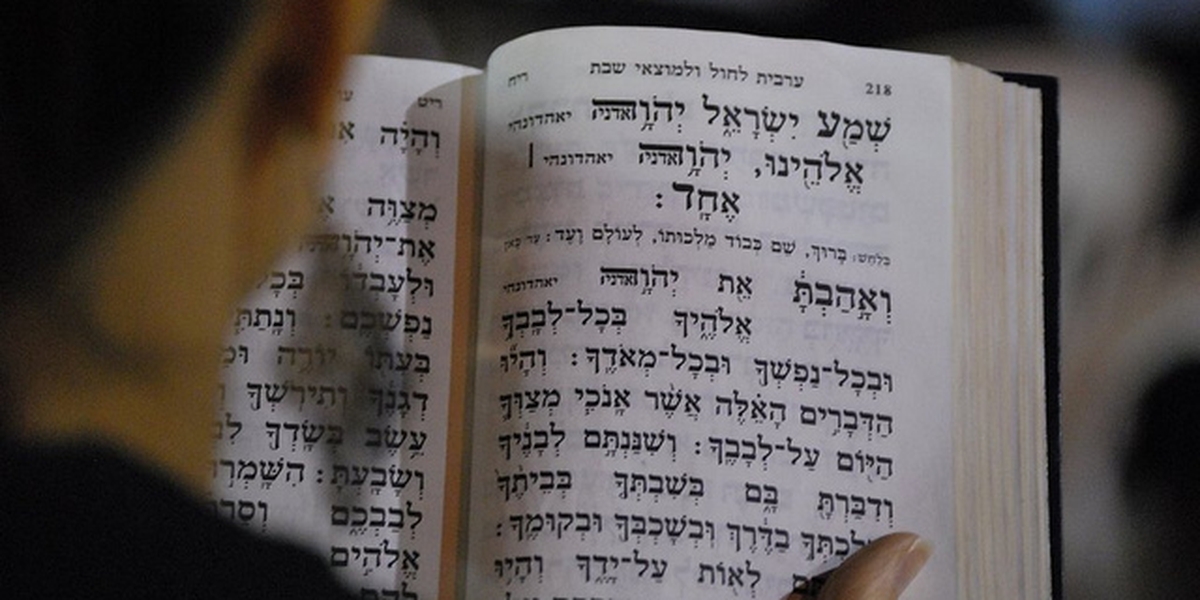 218 ערבית לחול ולמוצאי שבת ריח
שְׁמַע יִשְׂרָאֵל יְהֹוָה אדני יאהדונהי
אֱלֹהֵינוּ, יְהֹוָה אדני יאהדונהי |
אֶחָד:
בלחש: בָּרוּךְ, שֵׁם כְּבוֹד מַלְכוּתוֹ, לְעוֹלָם וָעֶד:
וְאָהַבְתָּ אֵת יְהֹוָה אדני יאהדונהי
אֱלֹהֶיךָ בְּכָל־לְבָבְךָ
וּבְכָל־נַפְשְׁךָ וּבְכָל־מְאֹדֶךָ: וְהָיוּ
הַדְּבָרִים הָאֵלֶּה אֲשֶׁר אָנֹכִי מְצַוְּךָ
הַיּוֹם עַל־לְבָבֶךָ: וְשִׁנַּנְתָּם לְבָנֶיךָ
וְדִבַּרְתָּ בָּם בְּשִׁבְתְּךָ בְּבֵיתֶךָ
בַדֶּרֶךְ וּבְשָׁכְבְּךָ וּבְקוּמֶךָ:
לְאוֹת עַל־יָדֶךָ וְהָיוּ
ריט
וְהָיָה
מְצַוֶּה
אֶת־יְהֹוָה
וּלְעָבְדוֹ בְּכָל
נַפְשְׁכֶם: וְנָתַתִּי
בְּעִתּוֹ יוֹרֶה
דְגָנֶךָ וְתִירֹשְׁךָ
עֵשֶׂב בְּשָׂדְךָ
וְשָׂבָעְתָּ: הִשָּׁמְרוּ
לְבַבְכֶם
אֱלֹהִים